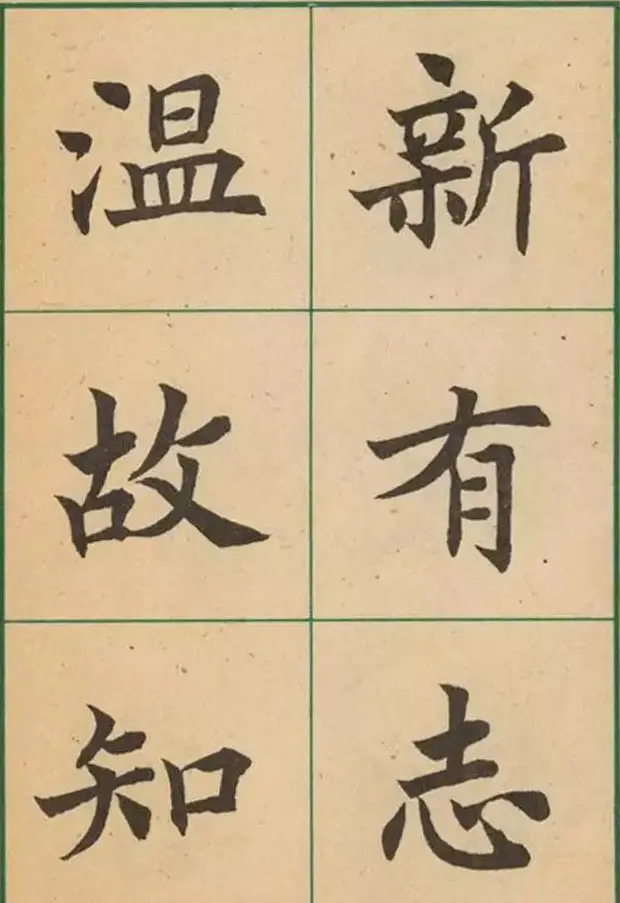 温故知
新有志